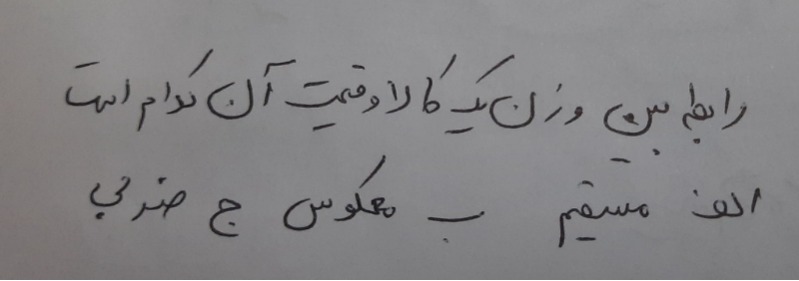 رابطه بین وزن یک کالا و قیمت آن کدام است
الف مستقیم ب معکوس ج ضربی